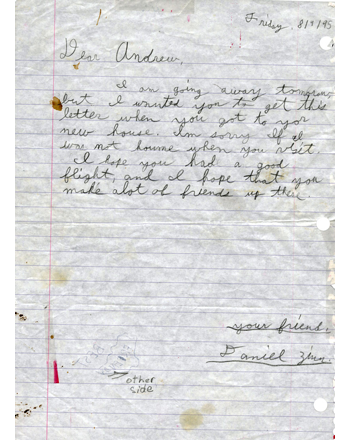 Friday, 8/9/95
Dear Andrew,
I am going away tomorrow
but I wanted you to get this
letter when you got to yor
new house. Im sorry If I
was not houme when you visit.
I hope you had a good
flight, and I hope that you
make alot of friends up their.
your friend,
Daniel
other
side